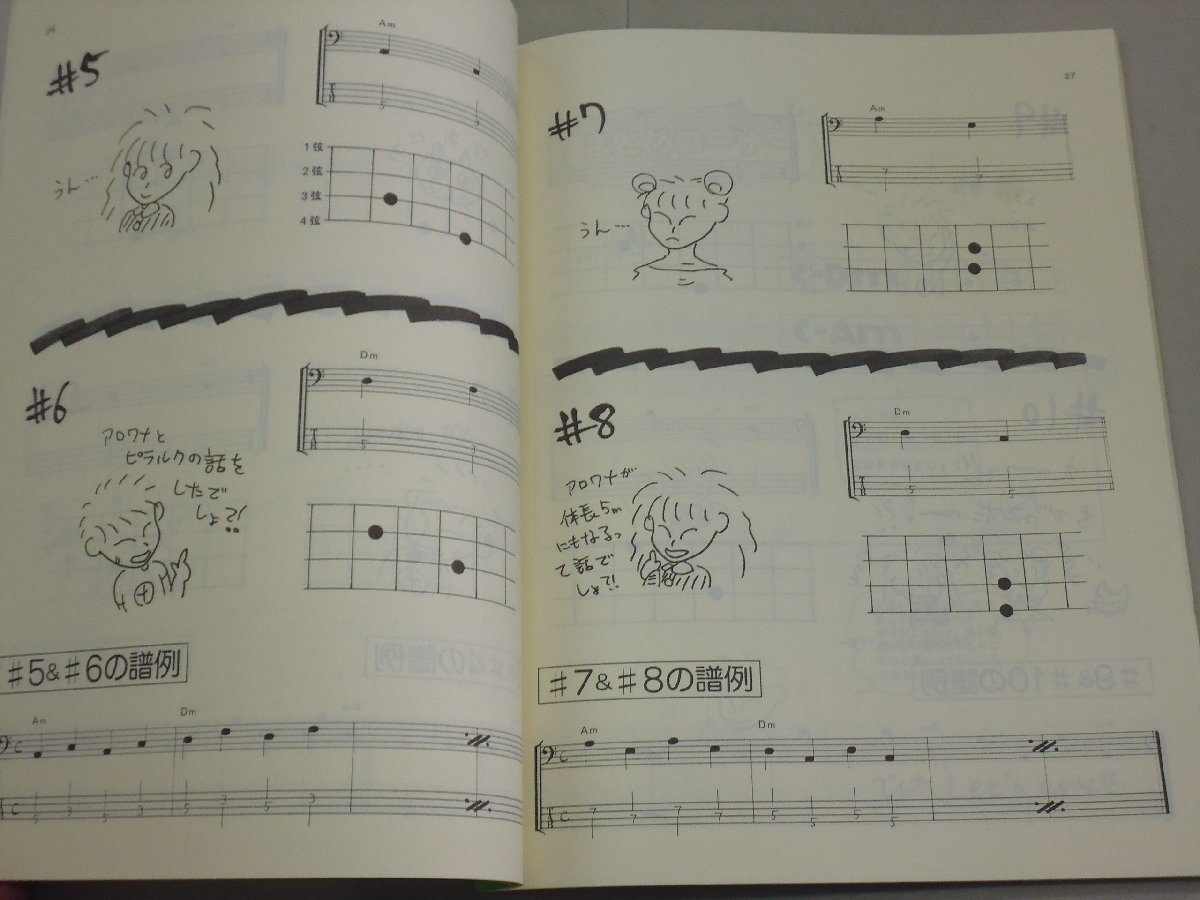 26
#5
Am
5
7
うん…
1弦
2弦
3弦
4弦
#6
Dm
5
3
アロワナと
ピラルクの話を
したで
しょ?!
#5&#6の譜例
Am
Dm
C
C
5
3
5
3
5
3
5
3
27
#7
Am
7
7
うん…
#8
Dm
5
5
アロワナが
体長5m
にもなるっ
て話で
しょ?!
#7&#8の譜例
Am
Dm
C
C
7
7
7
7
5
5
5
5